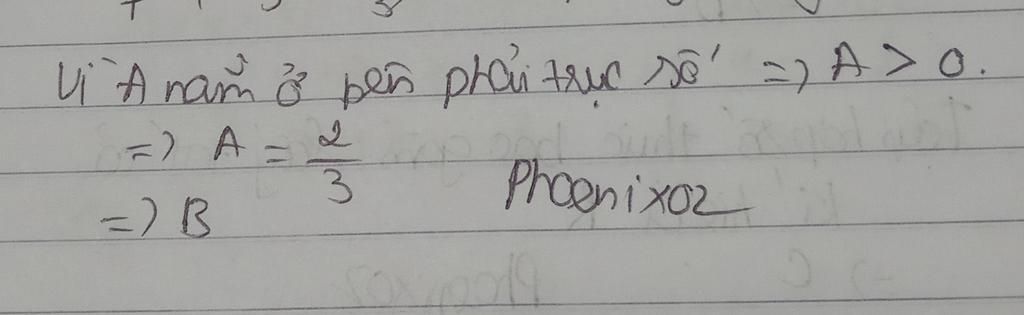 Vì A nằm ở bên phải trục số => A > 0.
=> A = 2/3
Phoenix02
=> B